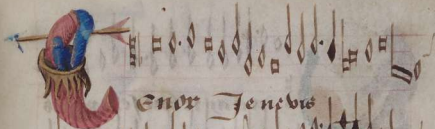 Tenor Je ne vis